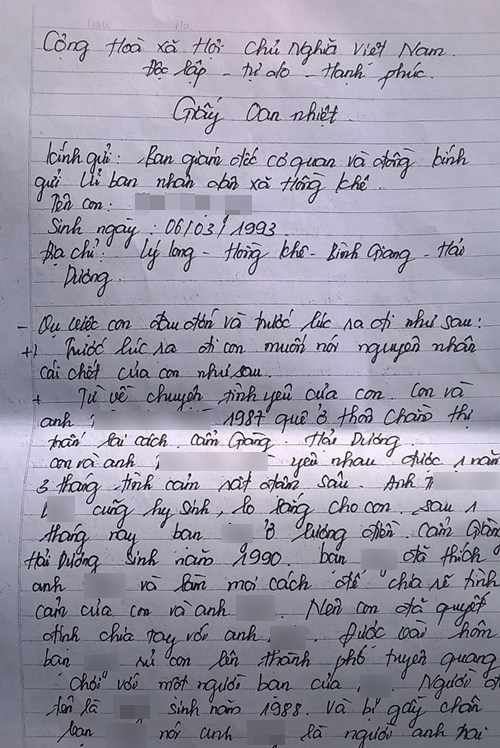 Cộng Hoà xã Hội Chủ Nghĩa Việt Nam.
Độc lập - tự do - Hạnh phúc.
Giấy Oan nhiệt.
kính gửi: Ban giám đốc cơ quan và đồng kính
gửi Uỉ ban nhân dân xã Hồng khê.
Tên con:
Sinh ngày: 06/03/1993
Địa chỉ: Lý long - Hồng khê - Bình Giang - Hải
Dương.
- con đau đớn và trước lúc ra đi như sau:
+) Trước lúc ra đi con muốn nói nguyên nhân
cái chết của con như sau.
+ Từ về chuyện tình yêu của con. Con và
anh 1987 quê ở thôn Chằm thị
trấn lai cách. Cẩm Giàng. Hải Dương.
con và anh yêu nhau được 1 năm
3 tháng tình cảm rất đậm sâu. Anh
cũng hy sinh, lo lắng cho con. sau 1
tháng nay bạn ở lương điền. Cẩm Giàng
Hải Dương sinh năm 1990. bạn đã thích
anh và làm mọi cách để chia sẽ tình
cảm của con và anh. Nên con đã quyết
định chia tay với anh. Được vài hôm
bạn rủ con lên thành phố tuyên quang
chơi với một người bạn của. Người đó
tên là sinh năm 1988. và bị gãy chân
bạn nói anh là người anh trai